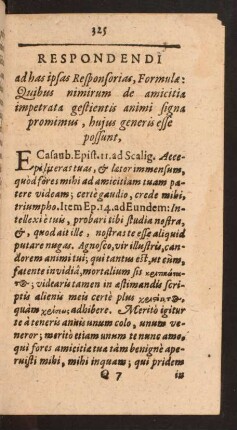 325
RESPONDENDI
ad has ipsas Responsorias, Formulæ:
Quibus nimirum de amicitia
impetrata gestientis animi signa
promimus, hujus generis esse
possunt,
E Casaub. Epist. 11. ad Scalig. Acce-
pi literas tuas, & lætor immensum,
quòd fores mihi ad amicitiam tuam pa-
tere videam; certè gaudio, crede mihi,
triumpho. Item Ep. 14. ad Eundem: In-
tellexi è tuis, probari tibi studia nostra,
&, quod ait ille, nostras te esse aliquid
putare nugas. Agnosco, vir illustris, can-
dorem animi tui; qui tantus est, ut eum,
fatente invidiâ, mortalium sis
videaris tamen in æstimandis scri-
ptis alienis meis certè plus
quàm adhibere. Meritò igitur
te à teneris annis unum colo, unum ve-
neror; meritò etiam unum te nunc amo,
qui fores amicitiæ tuæ tàm benignè ape-
ruisti mihi, mihi inquam; qui pridem
Q 7 in